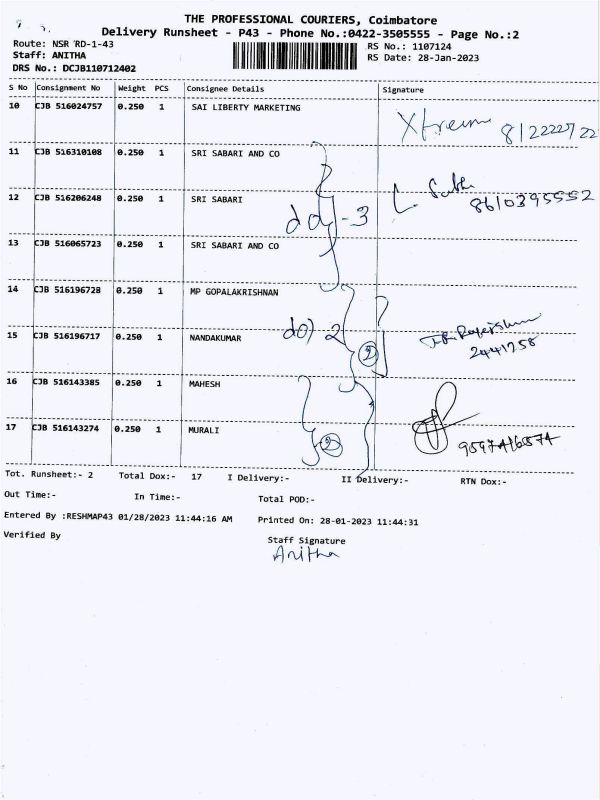 THE PROFESSIONAL COURIERS, Coimbatore
Delivery Runsheet - P43 - Phone No.:0422-3505555 - Page No.:2
Route: NSR RD-1-43
Staff: ANITHA
DRS No.: DCJB110712402
RS No.: 1107124
RS Date: 28-Jan-2023
S No Consignment No Weight PCS Consignee Details Signature
10 CJB 516024757 0.250 1 SAI LIBERTY MARKETING
Xtreem
11 CJB 516310108 0.250 1 SRI SABARI AND CO
12 CJB 516206248 0.250 1 SRI SABARI
8610395552
13 CJB 516065723 0.250 1 SRI SABARI AND CO
14 CJB 516196728 0.250 1 MP GOPALAKRISHNAN
15 CJB 516196717 0.250 1 NANDAKUMAR
2
2441758
16 CJB 516143385 0.250 1 MAHESH
17 CJB 516143274 0.250 1 MURALI
2
9597416574
Tot. Runsheet:- 2 Total Dox:- 17 I Delivery:- II Delivery:- RTN Dox:-
Out Time:- In Time:- Total POD:-
Entered By :RESHMAP43 01/28/2023 11:44:16 AM Printed On: 28-01-2023 11:44:31
Verified By
Staff Signature
Anitha